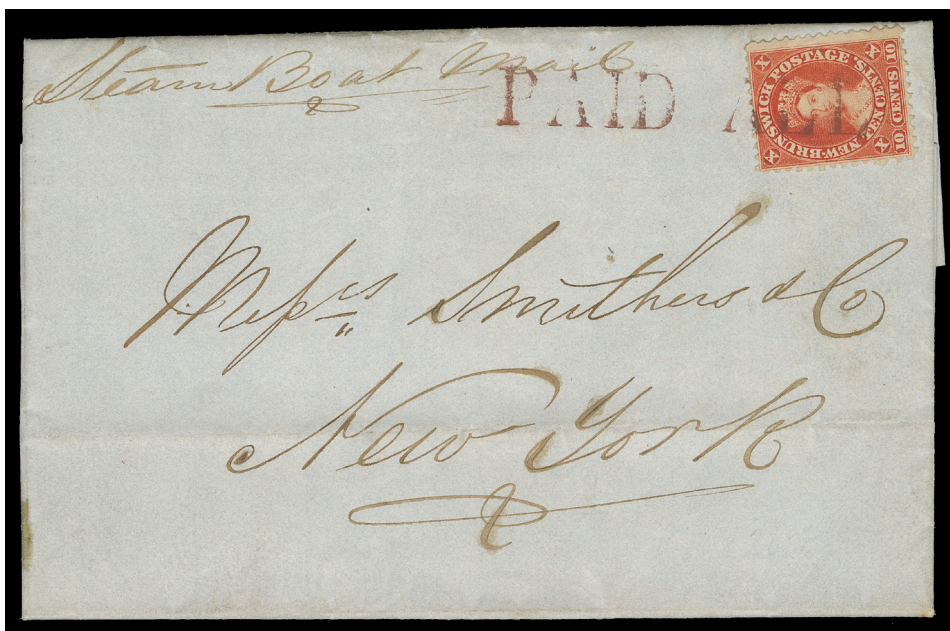 Steam Boat Mail
PAID ALL
NEW-BRUNSWICK POSTAGE. TEN CENTS.
10 CENTS 10
X X X X
Messrs Smithers & Co
New York